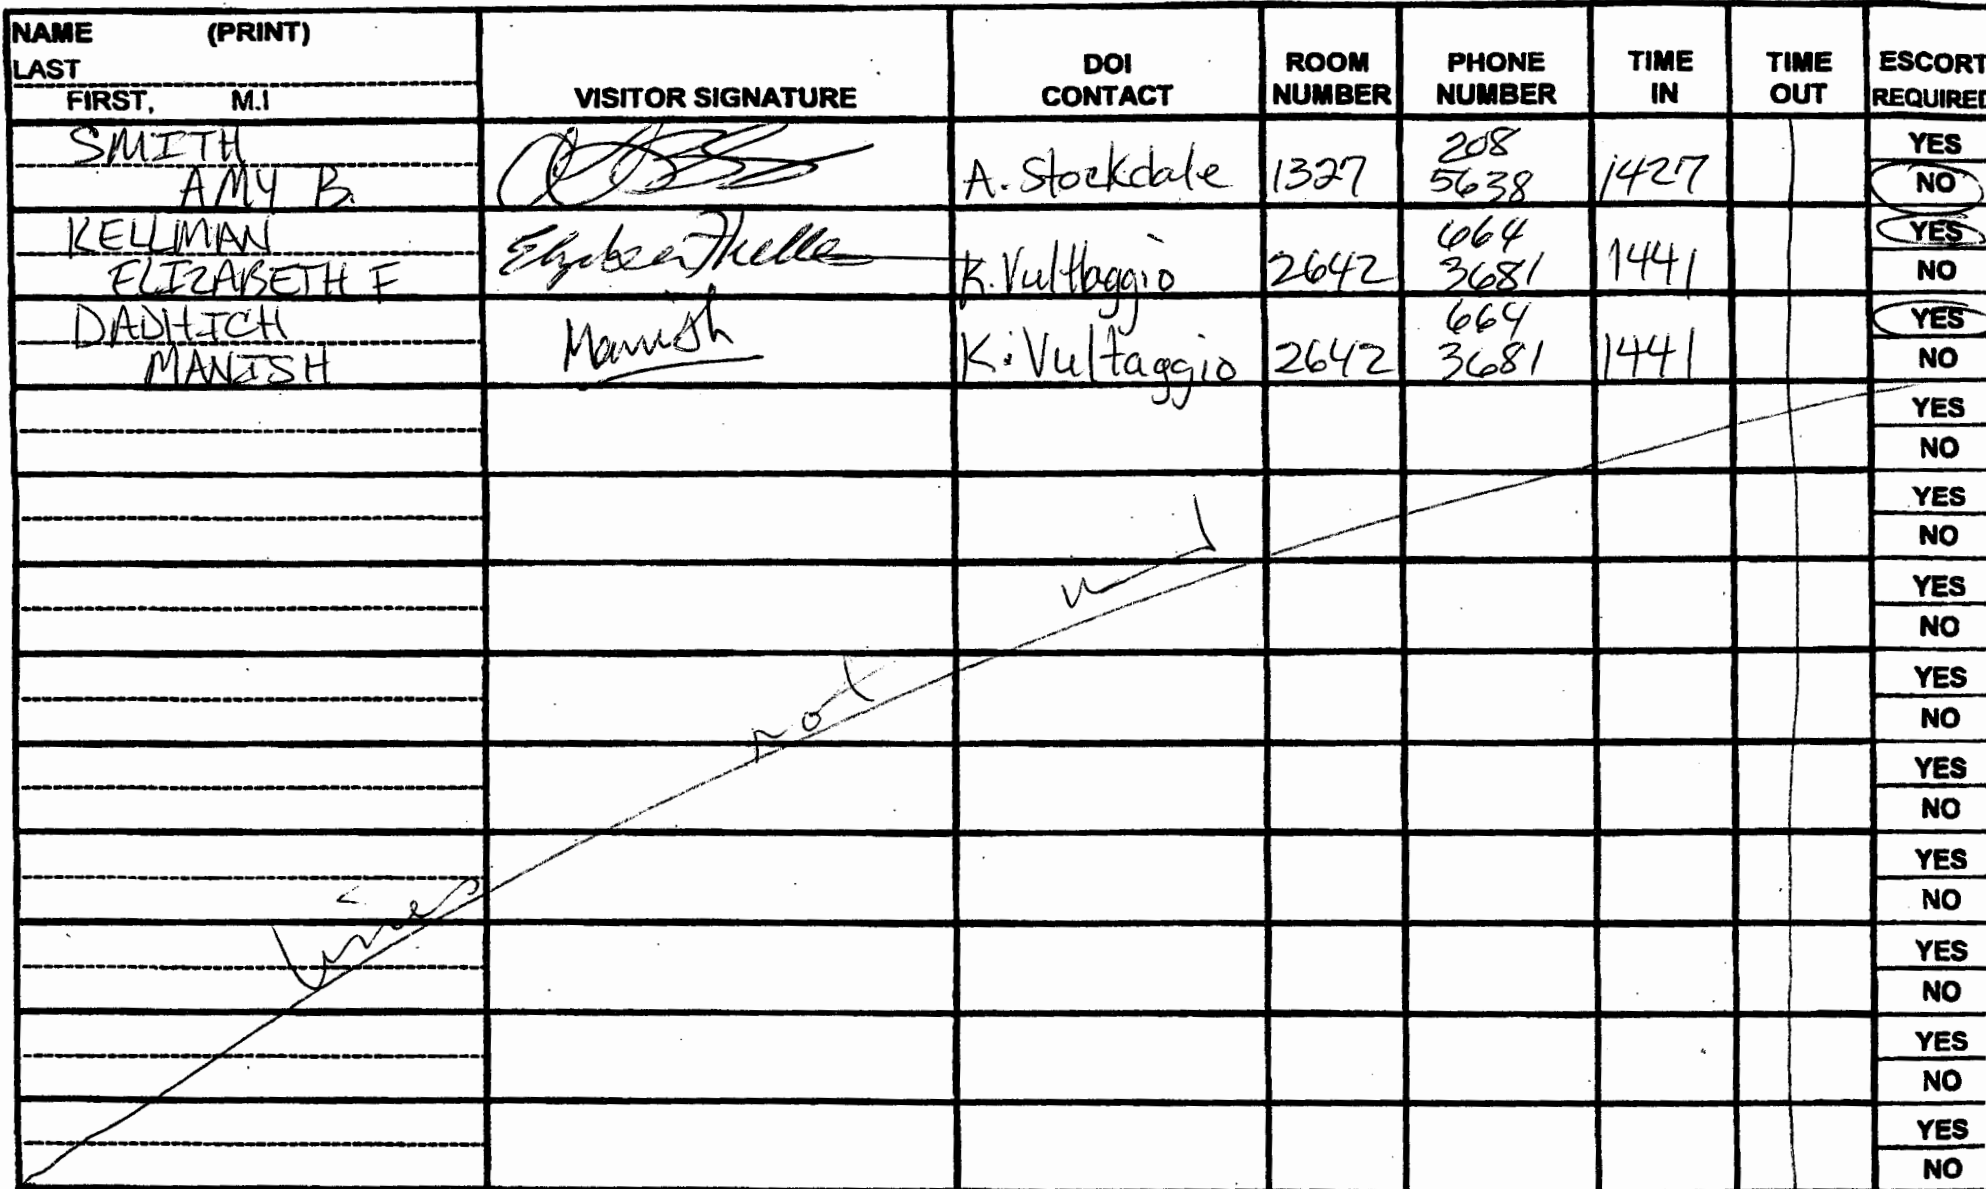 NAME (PRINT)
LAST
FIRST, M.I
VISITOR SIGNATURE
DOI CONTACT
ROOM NUMBER
PHONE NUMBER
TIME IN
TIME OUT
ESCORT REQUIRED
SMITH
AMY B.
A. Stockdale
1327
208
5638
1427
YES
NO
KELLMAN
ELIZABETH F
K. Vulttaggio
2642
664
3681
1441
YES
NO
DADHICH
MANISH
Manish
K. Vultaggio
2642
664
3681
1441
YES
NO
YES
NO
YES
NO
YES
NO
YES
NO
YES
NO
YES
NO
YES
NO
YES
NO
YES
NO
Lines not